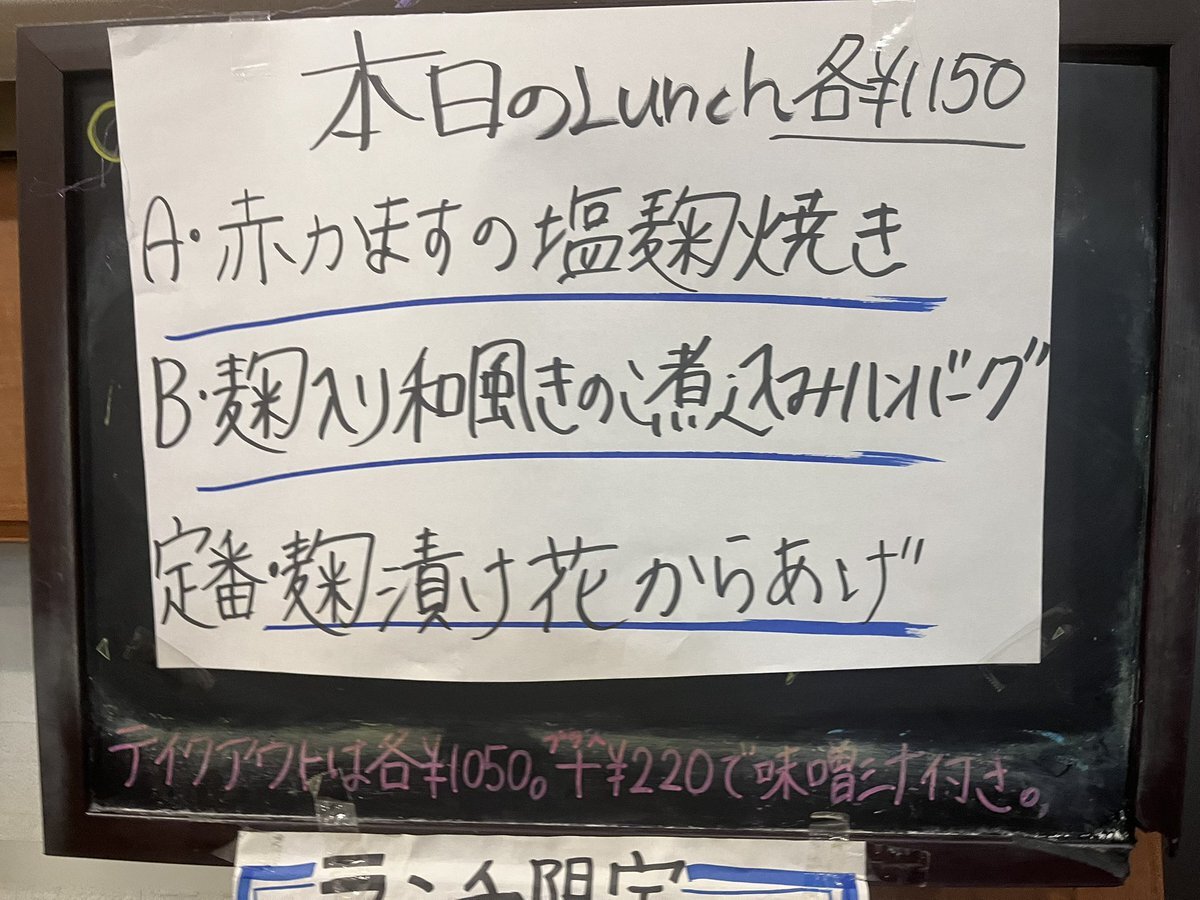 本日のLunch各¥1150
A・赤カますの塩麹焼き
B・麹入り和風きのこ煮込みハンバーグ
定番・麹漬け花からあげ
テイクアウトは各¥1050。プラス+¥220で味噌汁付き。
ランチ限定